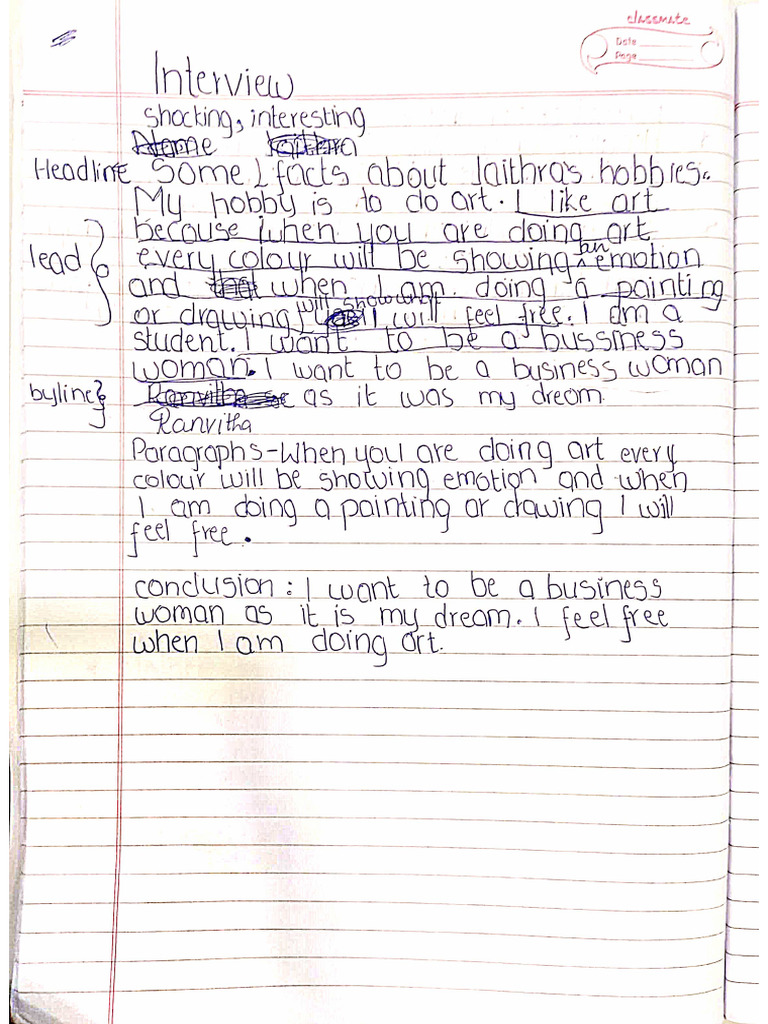 classmate
Date
Page
Interview
shocking, interesting
Name Jaithra
Headline Some facts about Jaithra's hobbies.
My hobby is to do art. I like art
because when you are doing art
lead every colour will be showing an emotion
and that when I am doing a painting
or drawing, will show what I will feel free. I am a
student. I want to be a bussiness
woman. I want to be a business woman
byline Ranvitha as it was my dream.
Ranvitha
Paragraphs-When you are doing art every
colour will be showing emotion and when
I am doing a painting or drawing I will
feel free.
conclusion: I want to be a business
woman as it is my dream. I feel free
when I am doing art.